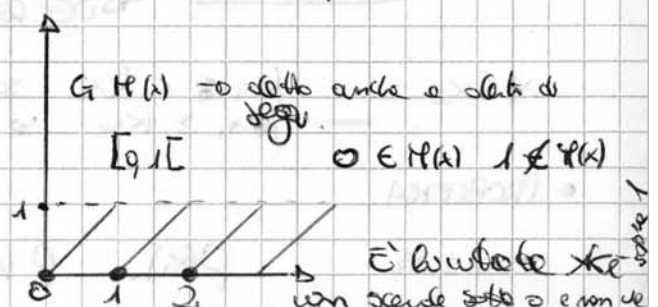 G M(x) → detto anche a denti di
sega.
[0,1[ 0 ∈ M(x) 1 ∉ M(x)
1
0 1 2
È limitato xké
non scende sotto 0 e non va
sopra 1